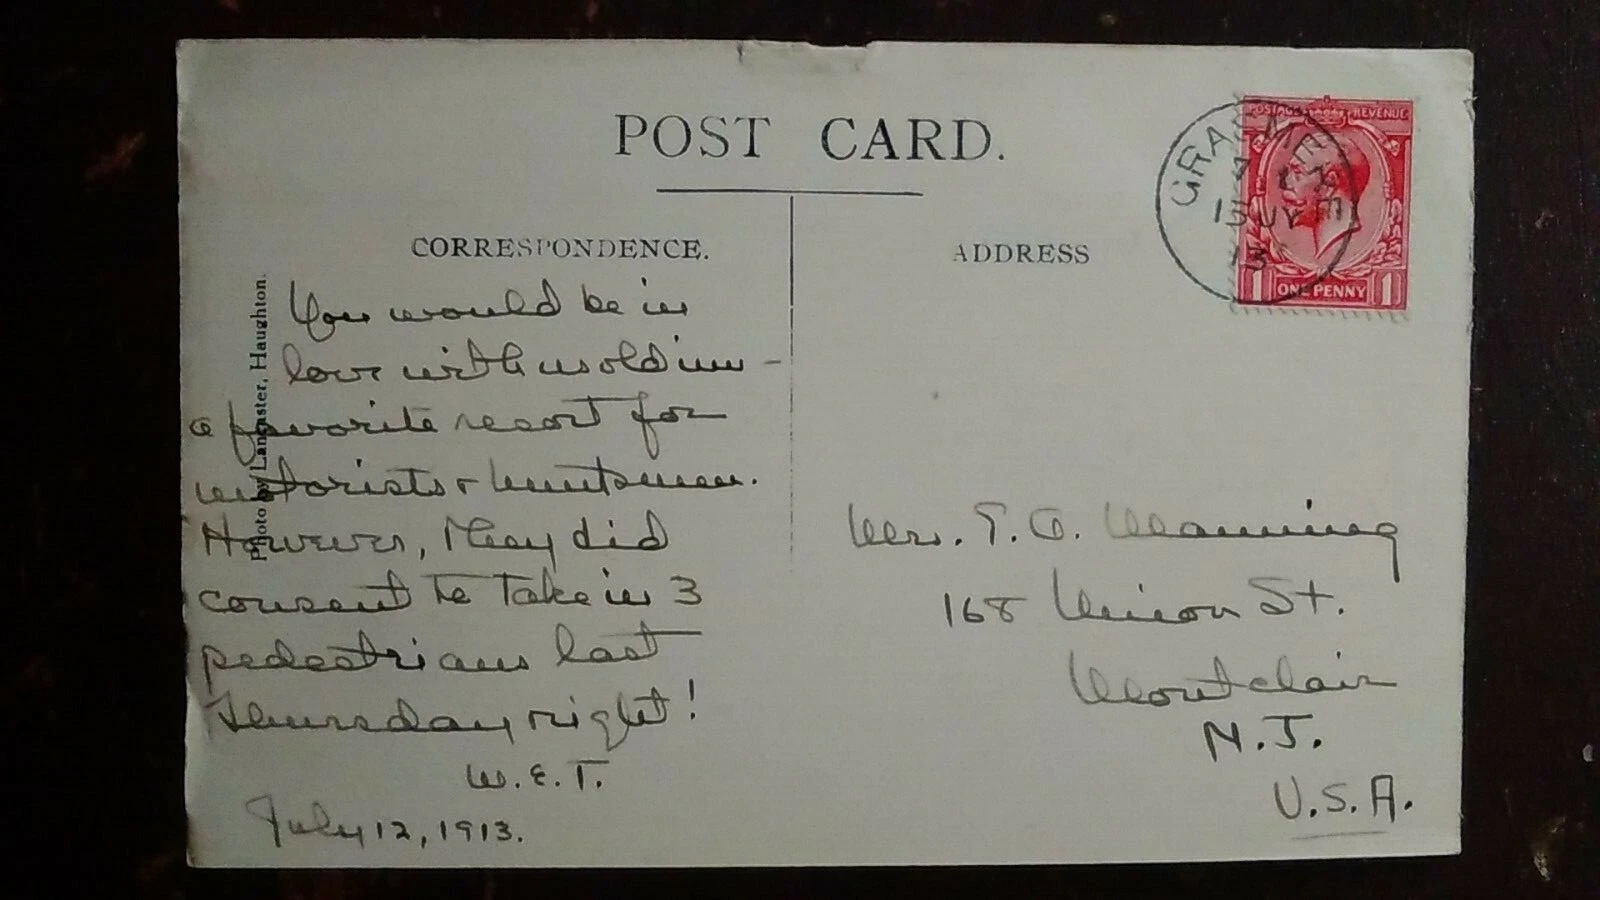 POST CARD.
CORRESPONDENCE.
ADDRESS
Photo by Lancaster, Haughton.
You would be in
love with us old inn -
a favorite resort for
motorists & huntsmen.
However, they did
consent to take in 3
pedestrians last
Thursday night!
W.E.T.
July 12, 1913.
GRASMERE
13
POSTAGE REVENUE
1 ONE PENNY 1
Mrs. T. O. Manning
168 Union St.
Montclair
N.J.
U.S.A.